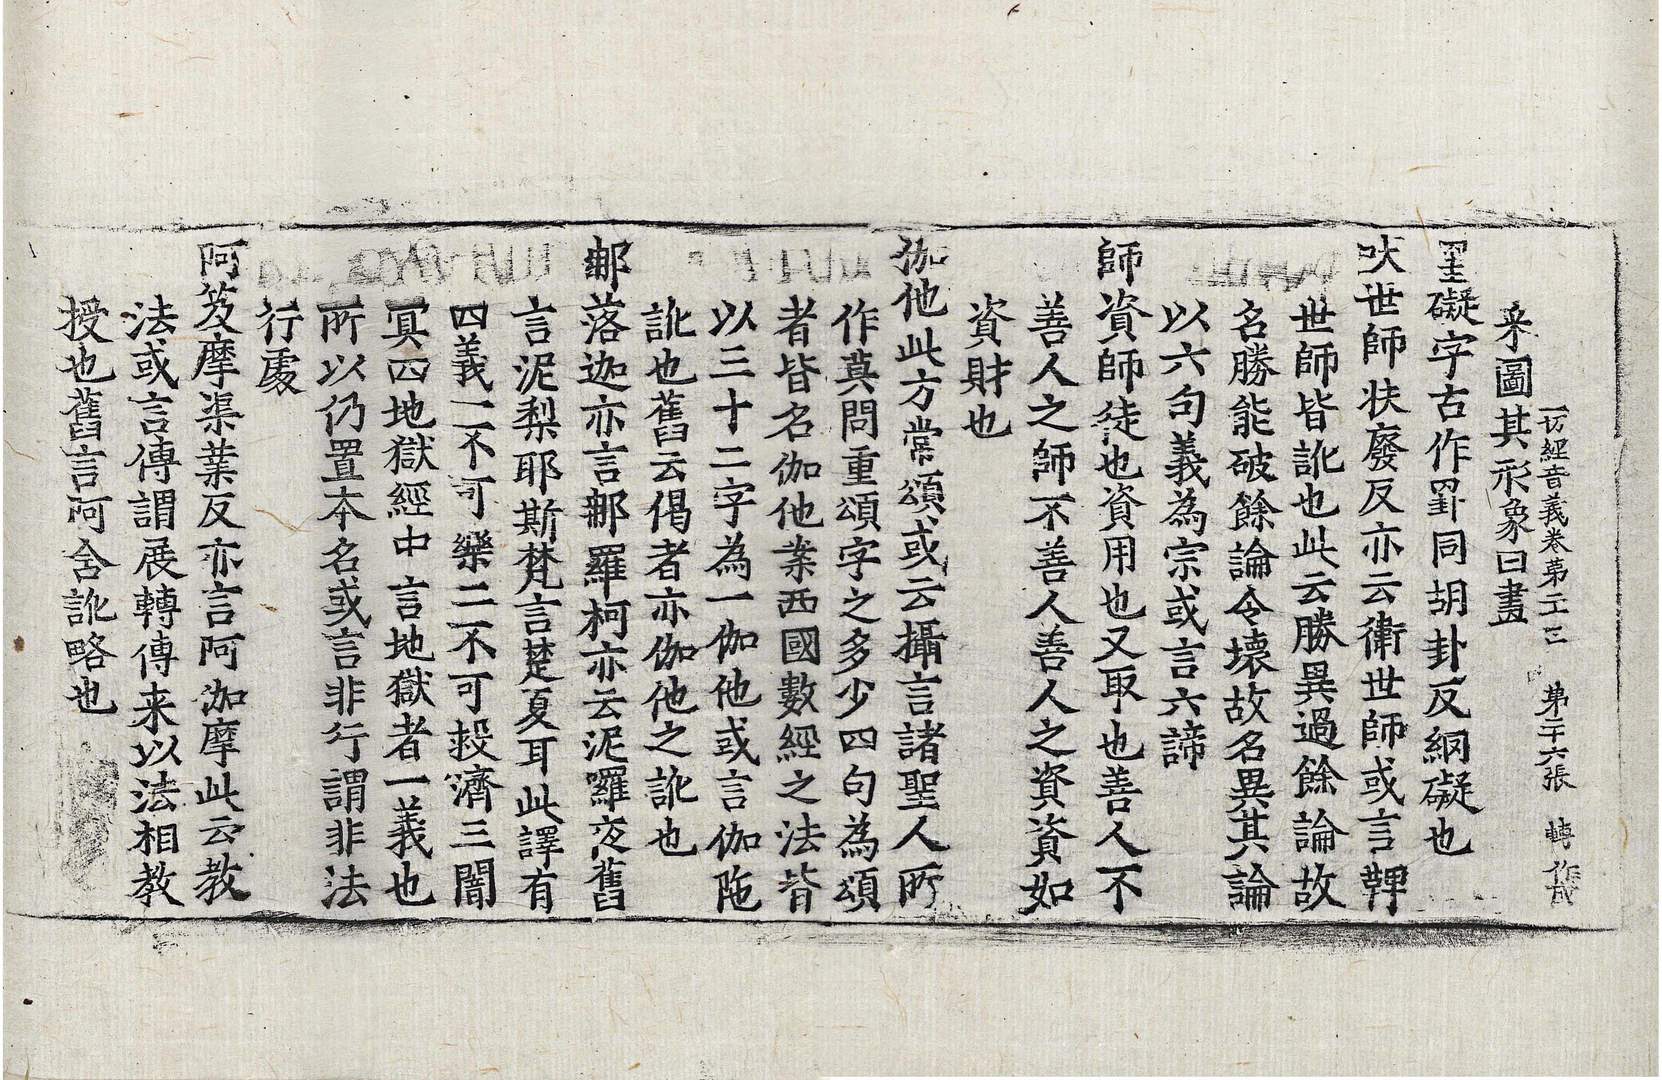 一切經音義卷第二十三 第二十六張 轉作
采圖其形象曰畫
罣礙字古作罫同胡卦反網礙也
吠世師扶廢反亦云衛世師或言鞞
世師皆訛也此云勝異過餘論故
名勝能破餘論令壞故名異其論
以六句義為宗或言六諦
師資師徒也資用也又取也善人不
善人之師不善人善人之資資如
資財也
伽他此方當頌或云攝言諸聖人所
作莫問重頌字之多少四句為頌
者皆名伽他案西國數經之法皆
以三十二字為一伽他或言伽陁
訛也舊云偈者亦伽他之訛也
郍落迦亦言郍羅柯亦云泥囉夜舊
言泥梨耶斯梵言楚夏耳此譯有
四義一不可樂二不可救濟三闇
冥四地獄經中言地獄者一義也
所以仍置本名或言非行謂非法
行處
阿笈摩渠葉反亦言阿伽摩此云教
法或言傳謂展轉傳来以法相教
授也舊言阿含訛略也